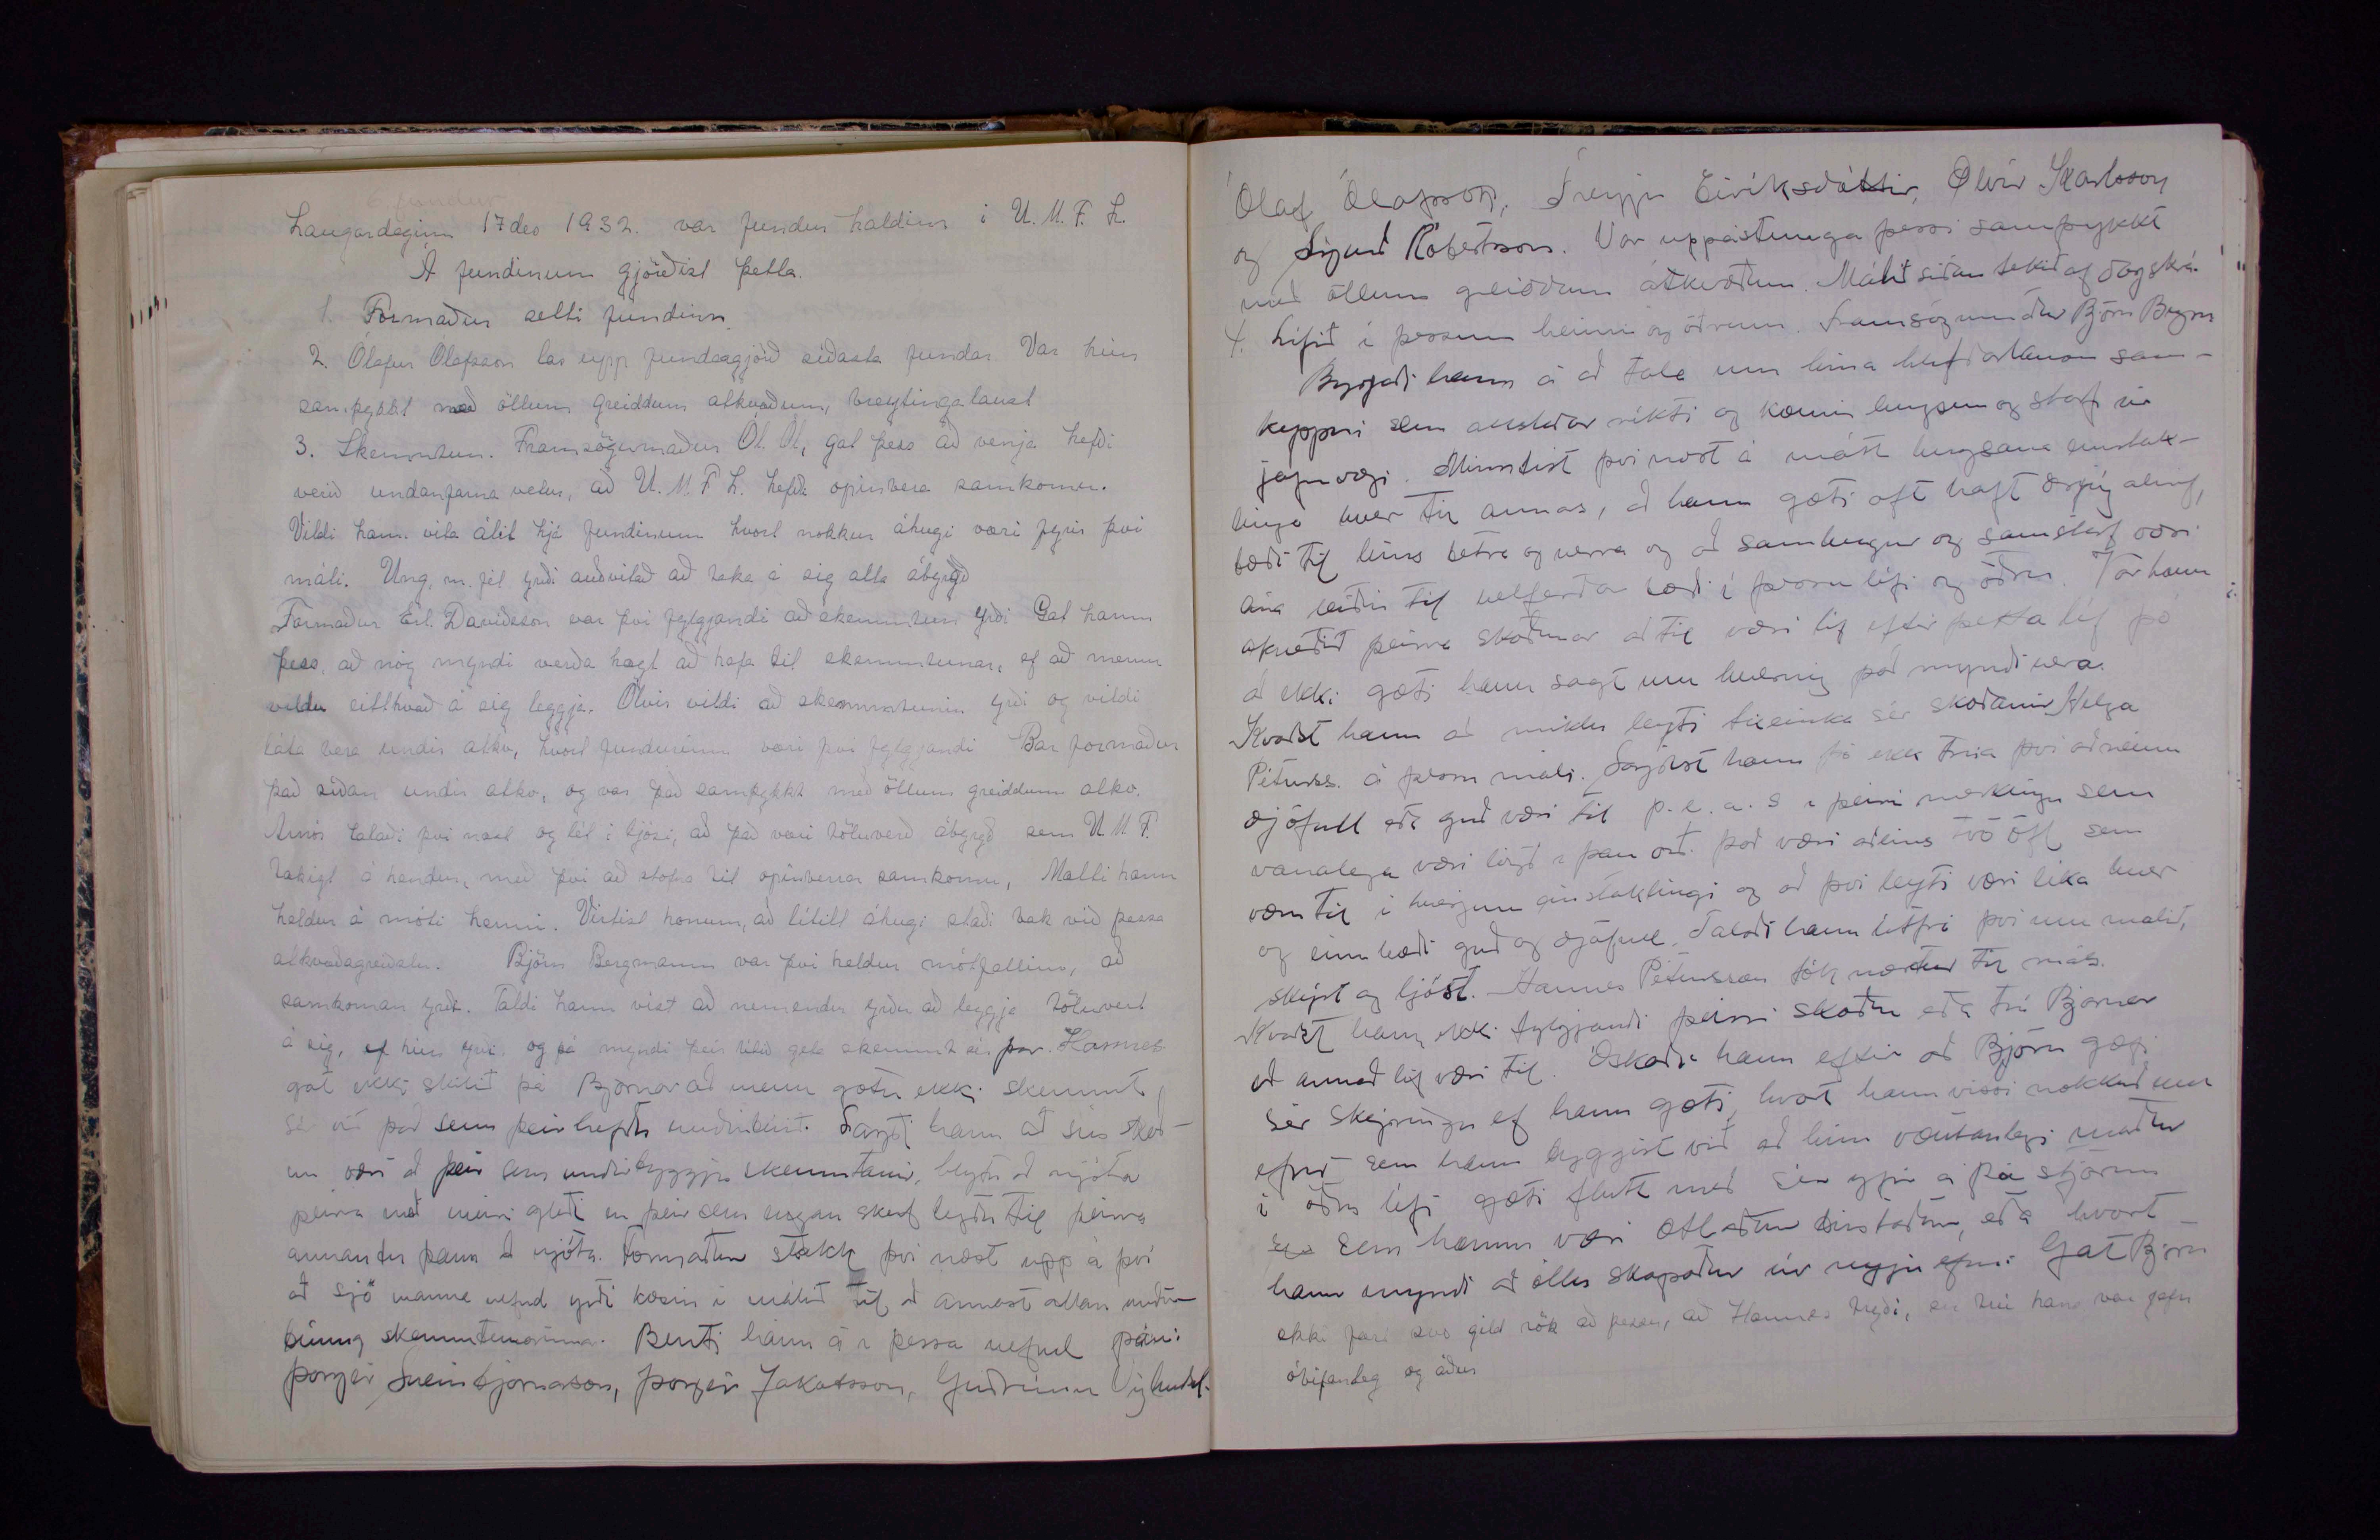 6 fundur
Laugardaginn 17 des 1932. var fundur haldinn í U. M. F. L.
Á fundinum gjörðist þetta.
1. Formaður setti fundinn
2. Ólafur Ólafsson las upp fundargjörð síðasta fundar. Var hún
samþykkt með öllum greiddum atkvæðum, breytingalaust
3. Skemmtun. Framsögumaður Ól. Ól, gat þess að venja hefði
verið undanfarna vetur, að U. M. F. L. hefði opinbera samkomu.
Vildi hann vita álit hjá fundinum hvort nokkur áhugi væri fyrir því
máli. Ung. m. fél yrði auðvitað að taka á sig alla ábyrgð
Formaður Erl. Davíðsson var því fylgjandi að skemmtun yrði Gat hann
þess, að nóg myndi verða hægt að hafa til skemmtunar, ef að menn
vildu eitthvað á sig leggja. Ölvir vildi að skemmtunin yrði og vildi
láta bera undir atkv, hvort fundurinn væri því fylgjandi Bar formaður
það síðan undir atkv, og var það samþykkt með öllum greiddum atkv.
talaði því næst og lét í ljósi, að það væri töluverð ábyrgð sem U. M. F.
tækist á hendur, með því að stofna til opinberrar samkomu, Mælti hann
heldur á móti henni. Virtist honum, að lítill áhugi stæði bak við þessa
atkvæðagreiðslu. Björn Bergmann var því heldur mótfallinn, að
samkoman yrði. Taldi hann víst að nemendur yrðu að leggja töluvert
á sig, ef hún yrði, og þá myndi þeir lítið geta skemmt sér þar. Hannes
gat ekki skilið þá Bjarnar að menn gætu ekki skemmt
sér við það sem þeir hefðu undirbúið. Sagði hann að sín skoð-
un væri að þeir sem undirbyggju skemmtanir, hlytu að njóta
þeirra með meiri gleði en þeir sem engan skerf legðu til þeirra
annan en þann að njóta. Formaður stakk því næst upp á því
að sjö manna nefnd yrði kosin í málið til að annast allan undir-
búning skemmtunarinnar. Benti hann á í þessa nefnd þau:
Þorgeir Sveinbjarnarson, Þorgeir Jakobsson, Guðrúnu Víglundsd.
Ólaf Ólafsson, Freyju Eiríksdóttir, Ölvir Karlsson
og Sigurð Róbertsson. Var uppástunga þessi samþykkt
með öllum greiddum atkvæðum. Málið síðan tekið af dagskrá.
4. Lífið í þessum heimi og öðrum. Framsögumaður Björn Bergm
Byrjaði hann á að tala um hina sam-
keppni sem allstaðar ríkti og kæmi hugsun og starfi úr
jafnvægi. Minntist því næst á mátt hugsana einstak-
linga hver til annars, að hann gæti oft haft áhrif,
bæði til hins betra og verra og að samhugur og samstarf væri
eina leiðin til velferðar bæði í þessu lífi og öðru. Var hann
ákveðið þeirrar skoðunar að til væri líf eftir þetta líf þó
að ekki gæti hann sagt um hvernig það myndi vera.
Kvaðst hann að miklu leyti tileinka sér skoðanir Helga
Péturss. á þessu máli. Sagðist hann þó ekki trúa því að neinn
djöfull eða guð væri til þ. e. a. s í þeirri merkingu sem
vanalega væri lögð í þau orð. það væri aðeins tvö öfl sem
væru til í hverjum einstaklingi og að því leyti væri líka hver
og einn bæði guð og djöfull. Talaði hann því um málið,
skýrt og ljóst. Hannes Pétursson tók næstur til máls.
Kvaðst hann ekki fylgjandi þeirri skoðun eða trú Bjarnar
að annað líf væri til. Óskaði hann eftir að Björn gæfi
sér skýringu ef hann gæti, hvort hann vissi nokkuð um
efnið sem hann byggist við að hinn væntanlegi maður
í öðru lífi gæti flutt með sér yfir á þá stjörnu
sem honum væri ætlaður bústaður, eða hvort
hann myndi að öllu skapaður úr nýju efni. Gat Björn
ekki fært svo gild rök að þessu, að Hannes tryði, en trú hans var jafn
óbifandleg og áður